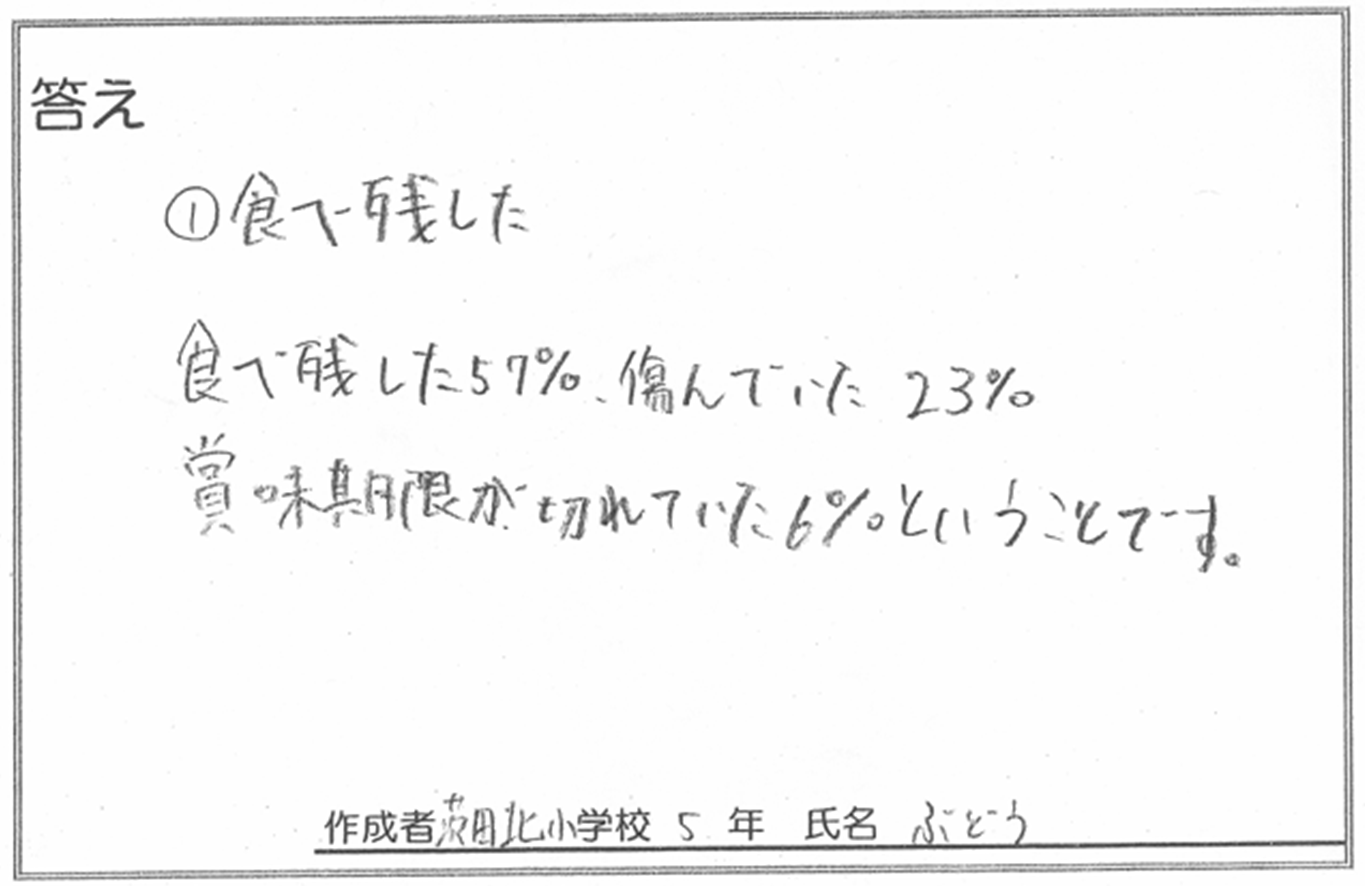 答え
①食べ残した
食べ残した57%、傷んでいた 23%
賞味期限が切れていた6%ということです。
作成者 茨田北小学校 5 年 氏名 ぶどう